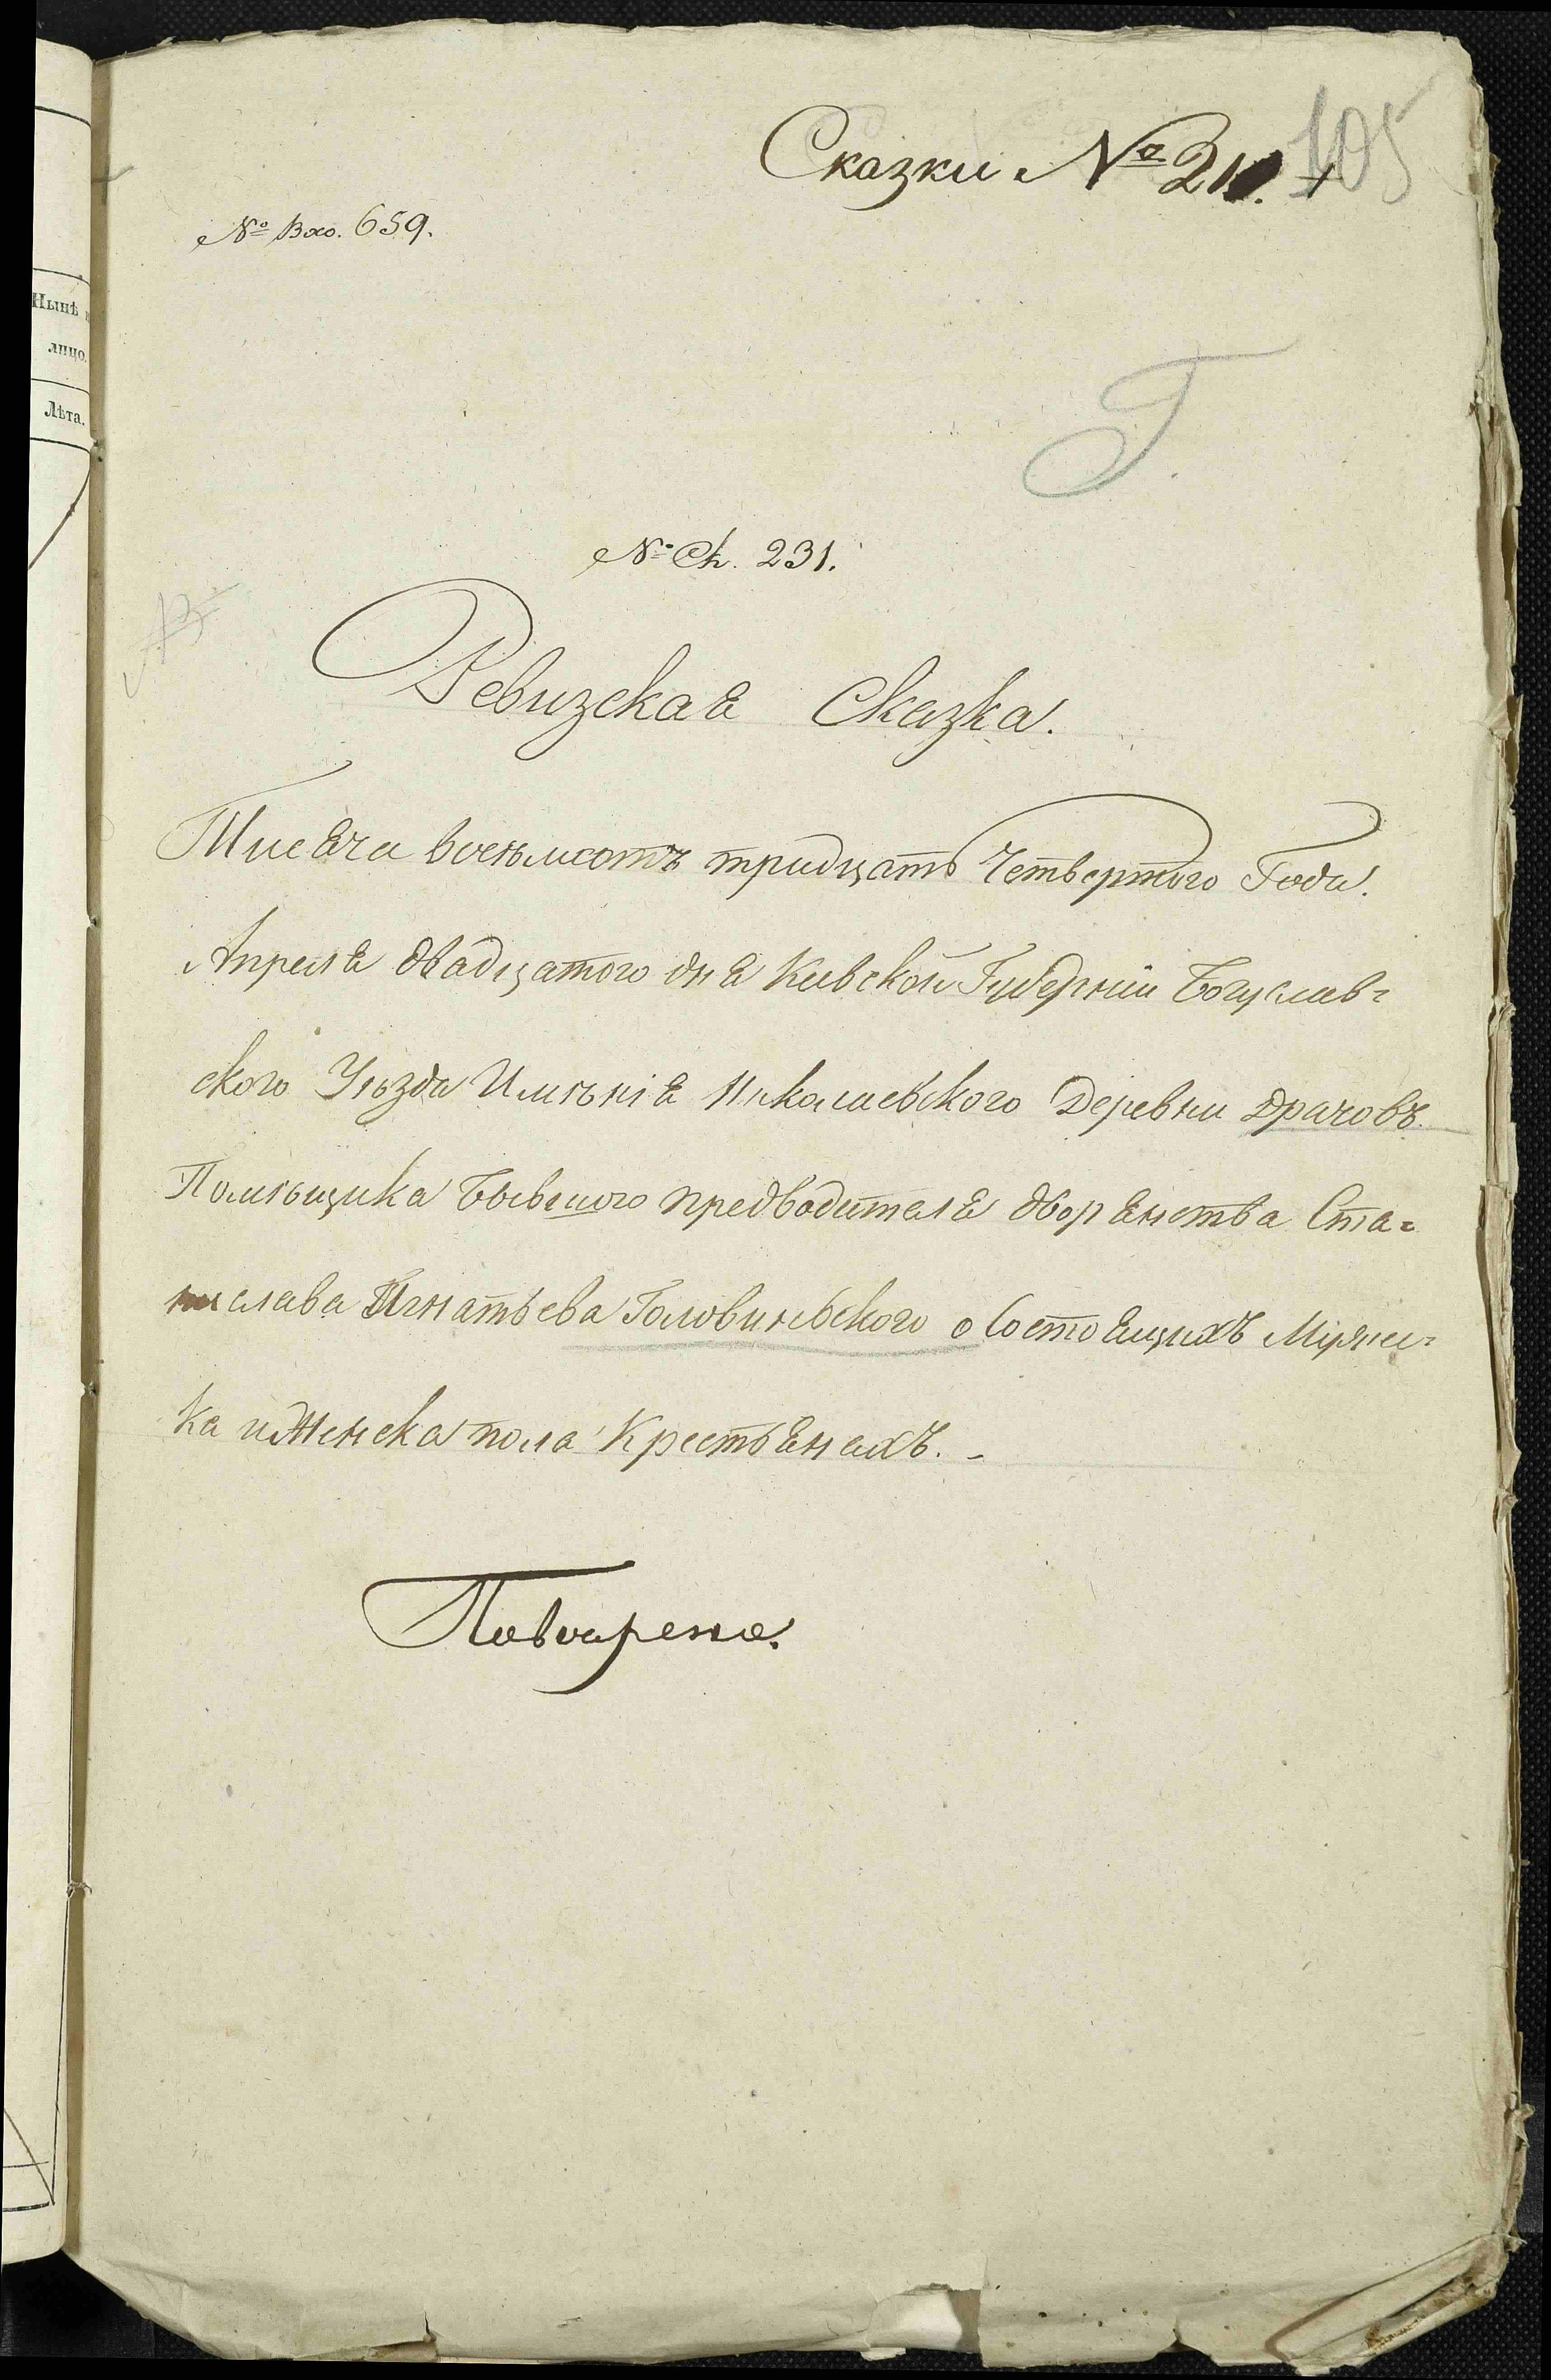 Сказки № 21
105
№ Вхо. 659.
Нынѣ
лицо.
Лѣта.
Г.
№ Ск. 231.
Ревизская Сказка.
Тисяча восьмсотъ тридцать Четвертого Года.
Апреля двадцатого дня Киевской Губернии Богуслав=
ского Уѣзда Имѣнія Николаевского Деревни Драчовъ
Помѣщика Бывшого предводителя дворянства Ста=
нислава Игнатьева Головинского о Состоящихъ Мужес=
ка и Женска пола Крестьянахъ. -